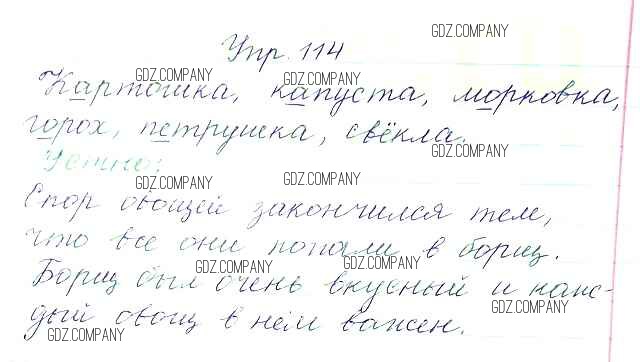 GDZ.COMPANY
Упр. 114
GDZ.COMPANY GDZ.COMPANY
Картошка, капуста, морковка,
горох, петрушка, свёкла.
GDZ.COMPANY
Устно:
GDZ.COMPANY GDZ.COMPANY
Спор овощей закончился тем,
что все они попали в борщ.
GDZ.COMPANY GDZ.COMPANY
Борщ был очень вкусный и каж-
GDZ.COMPANY
дый овощ в нём важен.
GDZ.COMPANY